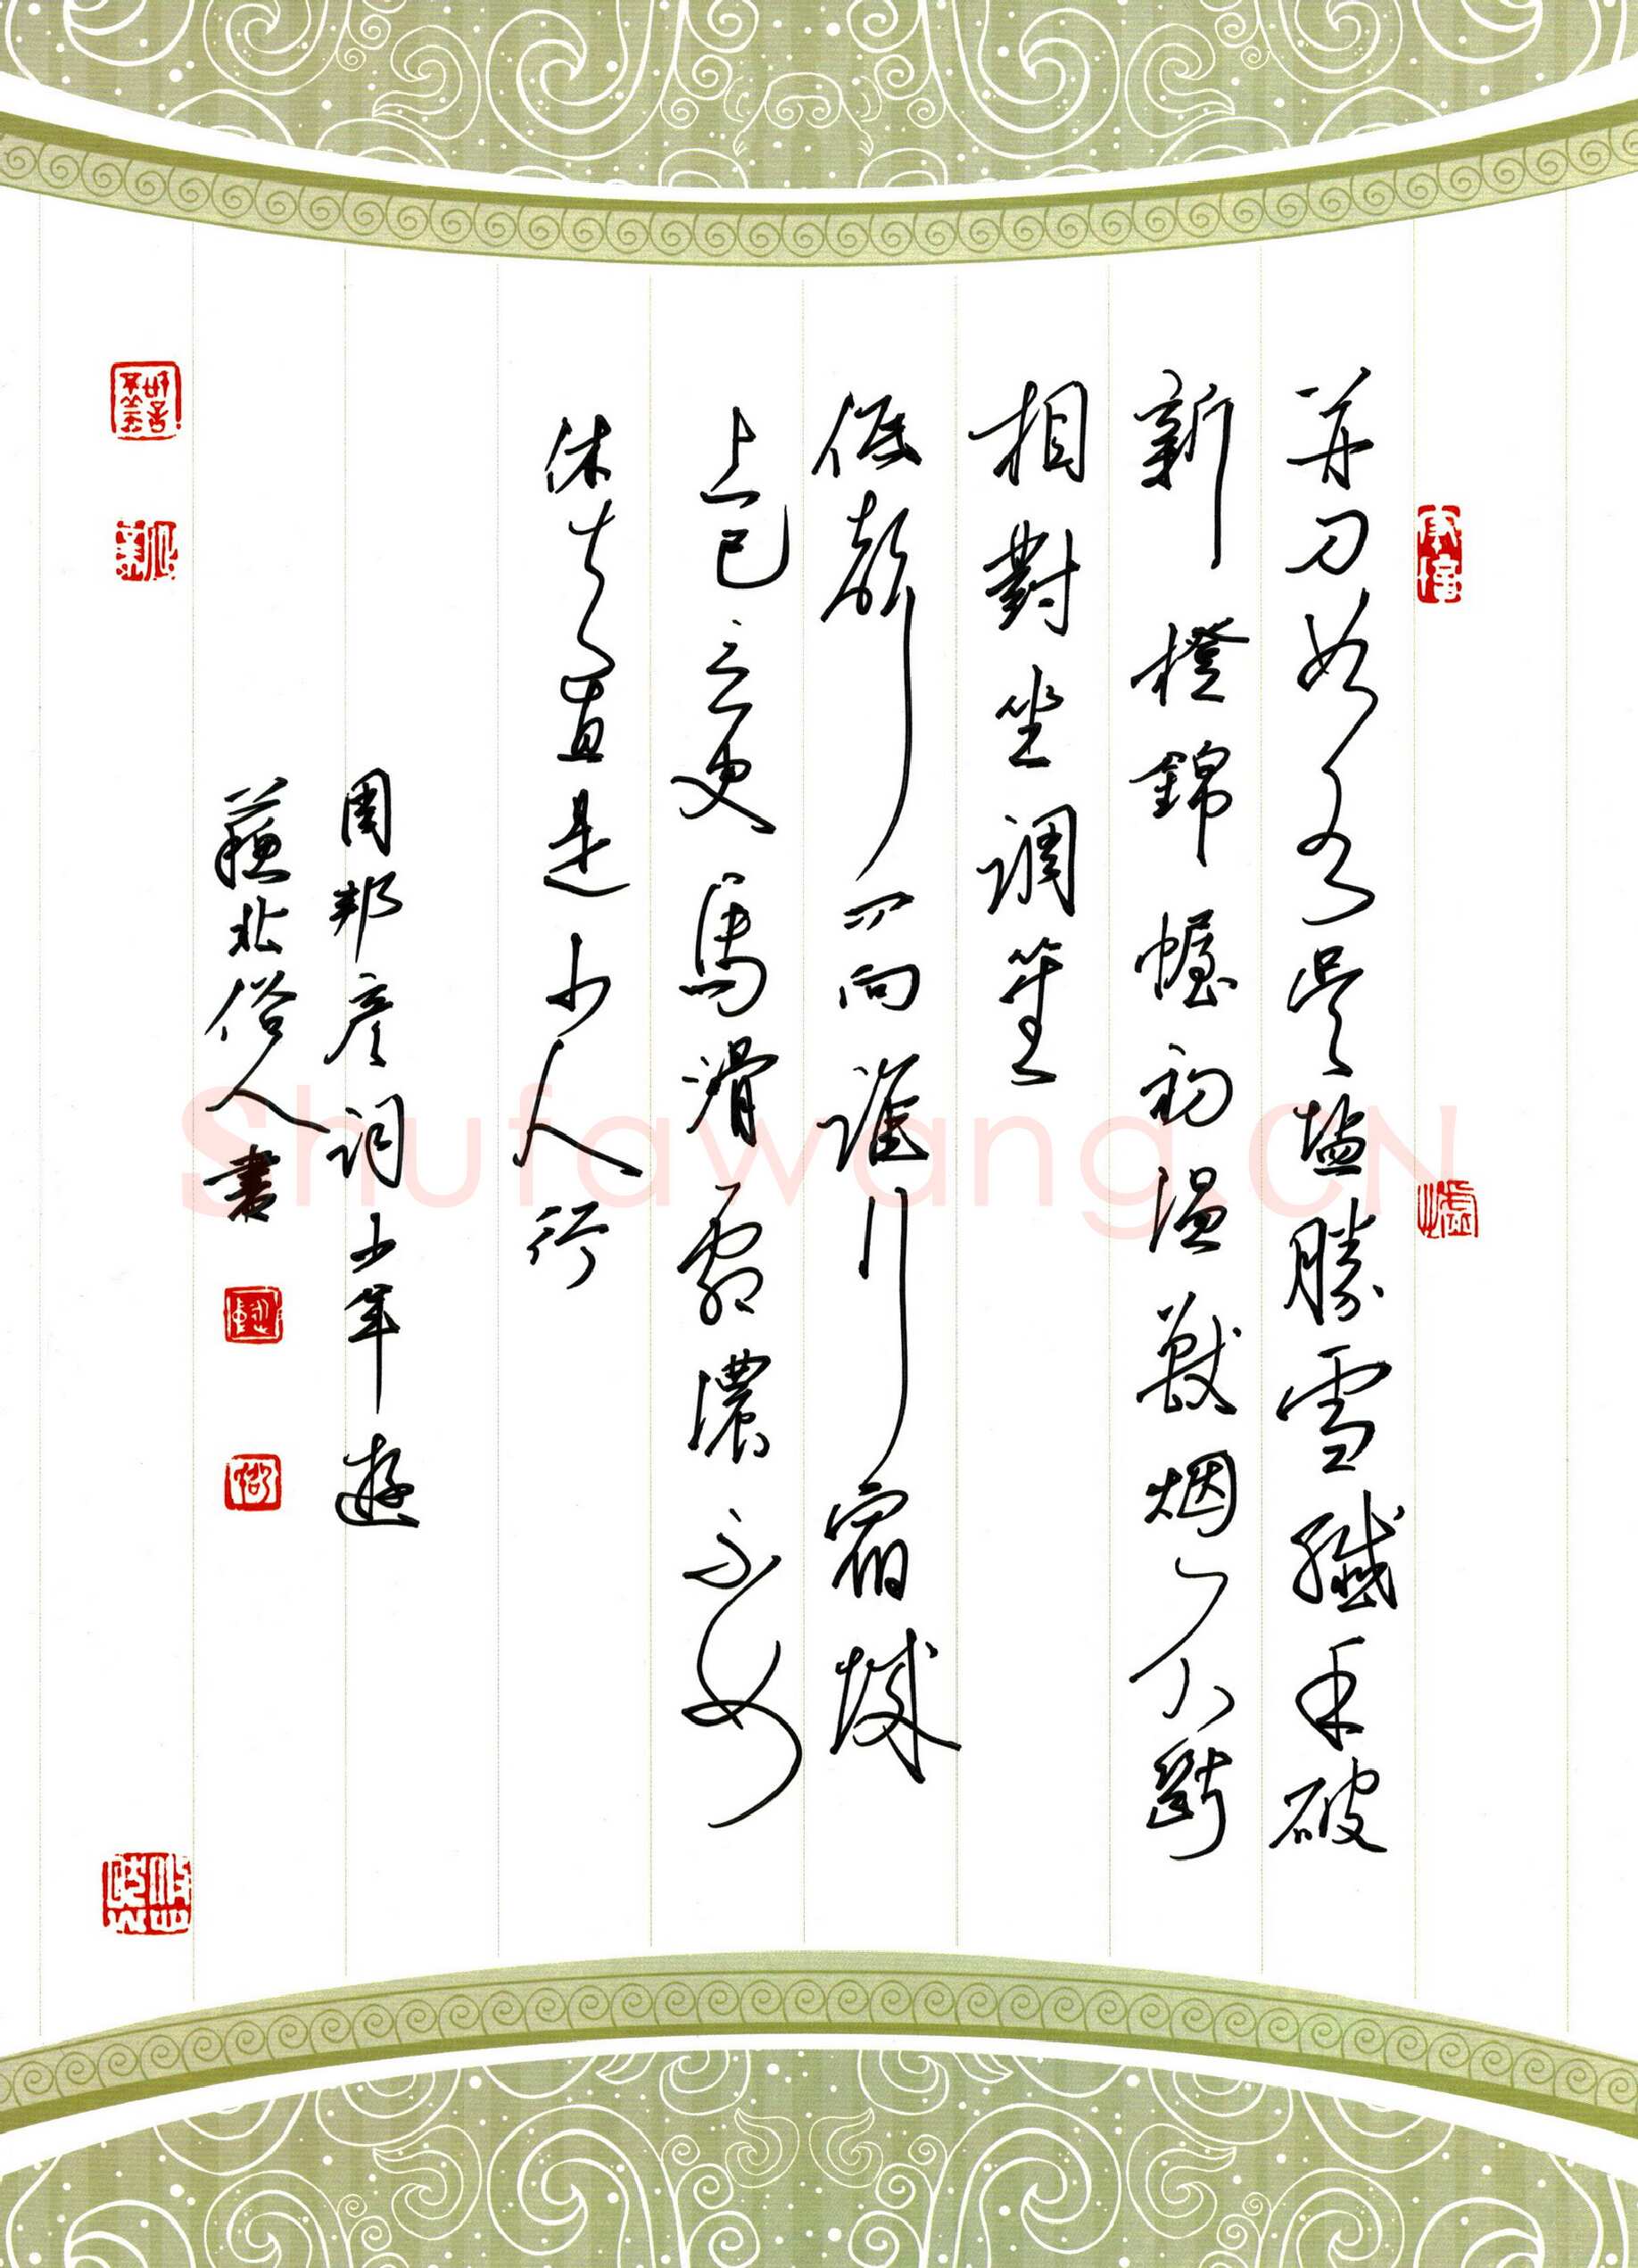 并刀如水吳塩勝雪纖手破
新橙錦幄初温獸烟不斷
相對坐調笙
低聲問向誰行宿城
上已三更馬滑霜濃不如
休去直是少人行
周邦彦詞少年遊
蘇北俗人書
Shufawang.CN